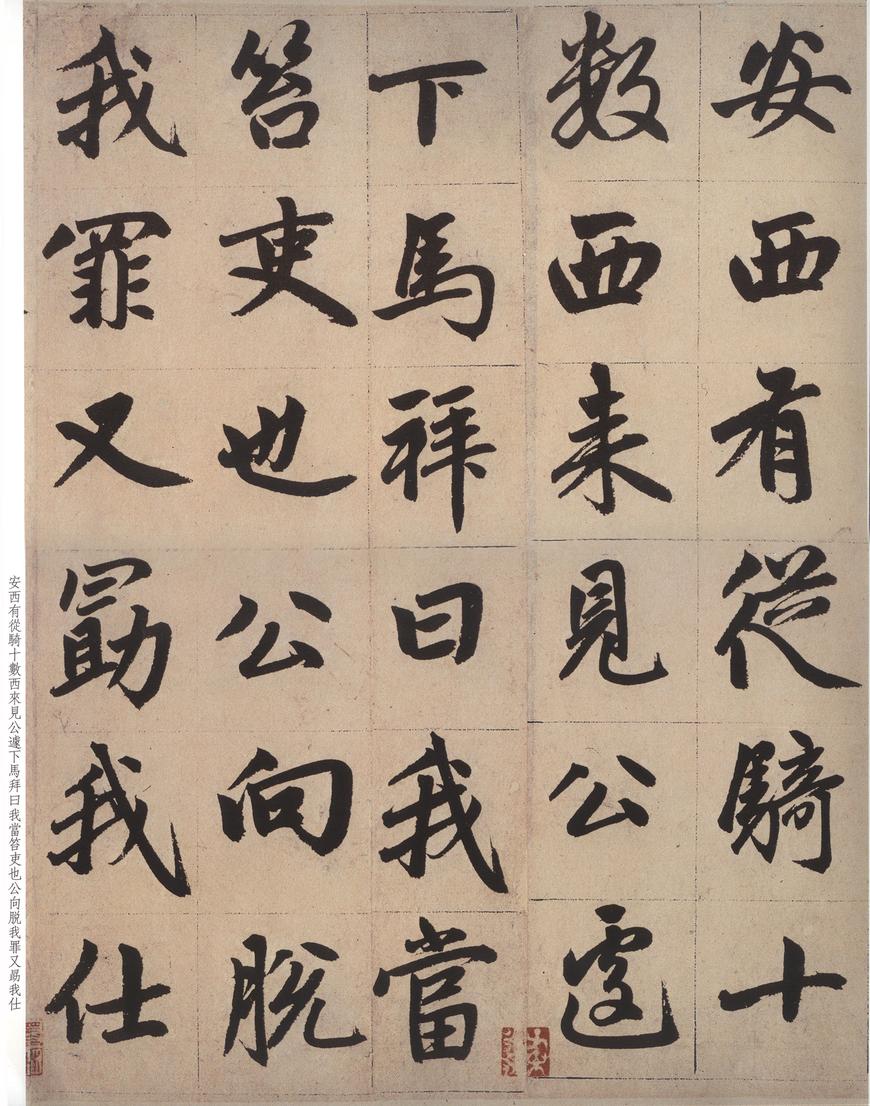 安西有從騎十
數西来見公遽
下馬拜曰我當
笞吏也公向脱
我罪又勗我仕
安西有從騎十數西來見公遽下馬拜曰我當笞吏也公向脱我罪又勗我仕